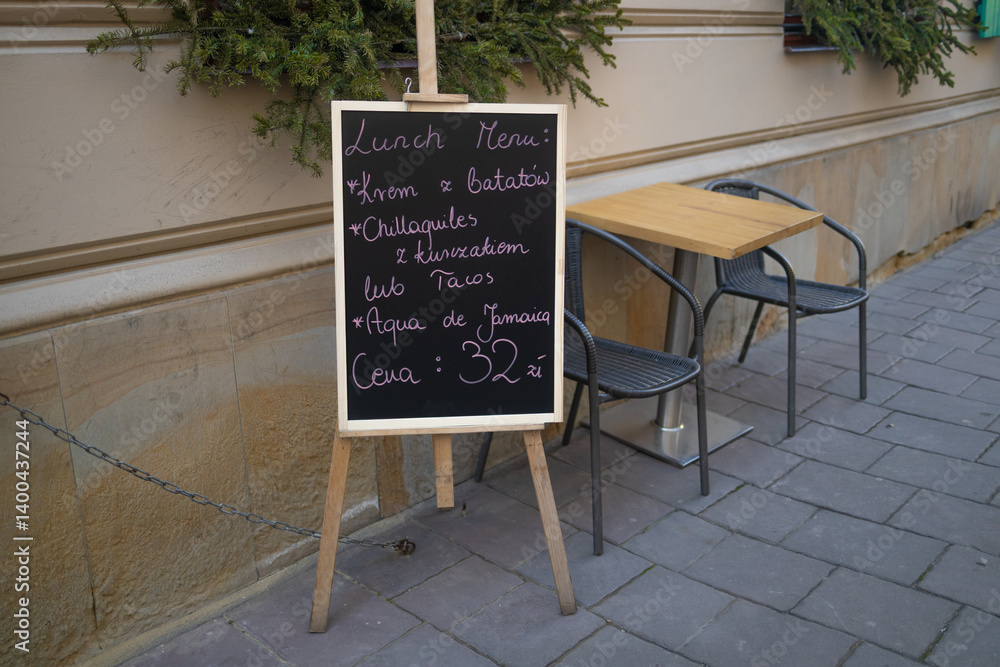 Lunch Menu:
*Krem z Batatów
*Chillaquiles
z kurczakiem
lub Tacos
*Aqua de Jamaica
Cena: 32 zł
Adobe Stock | #1400437244